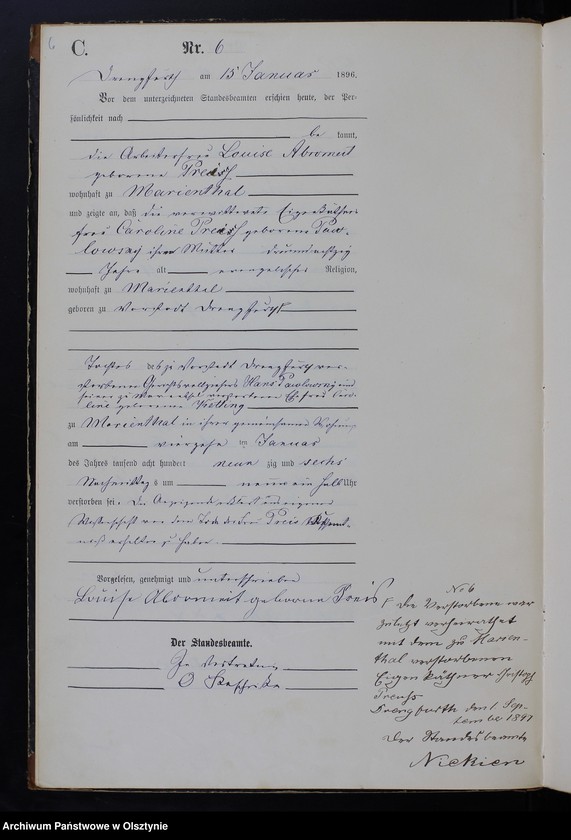 6
C.
Nr. 6
Drengfurth am 15 Januar 1896.
Vor dem unterzeichneten Standesbeamten erschien heute, der Per-
sönlichkeit nach
be kannt,
die Arbeiterfrau Louise Abromeit
geborene Preisß
wohnhaft zu Marienthal
und zeigte an, daß die verwittwete Eigenkäthner
frau Caroline Preiß geborene Paw-
lowsky ihre Mutter dreiundachtzig
Jahre alt evangelischer Religion,
wohnhaft zu Marienthal
geboren zu Vorstadt Drengfurth
Tochter des zu Vorstadt Drengfurth ver-
storbenen Hans Pawlowsky und
seiner zu verstorbenen Ehefrau Caro
line geborenen
zu Marienthal in ihrer gemeinsamen Wohnung
am vierzehn ten Januar
des Jahres tausend acht hundert neun zig und sechs
Nachmittag s um neun ein halb Uhr
verstorben sei. Die Anzeigende erklärt aus eigener
Wissenschaft von dem Tode der Frau Preis Kenntniß
erhalten zu haben.
Vorgelesen, genehmigt und unterschrieben
Louise Abromeit geborne Preis
Der Standesbeamte.
In Vertretung
O
No 6
Die Verstorbene war
zuletzt verheirathet
mit dem zu Marien-
thal verstorbenen
Eigenkäthner Christoph
Preuhs
Drengfurth den 1 Sep-
tember 1897
Der Standesbeamte
Nickien
Archiwum Państwowe w Olsztynie